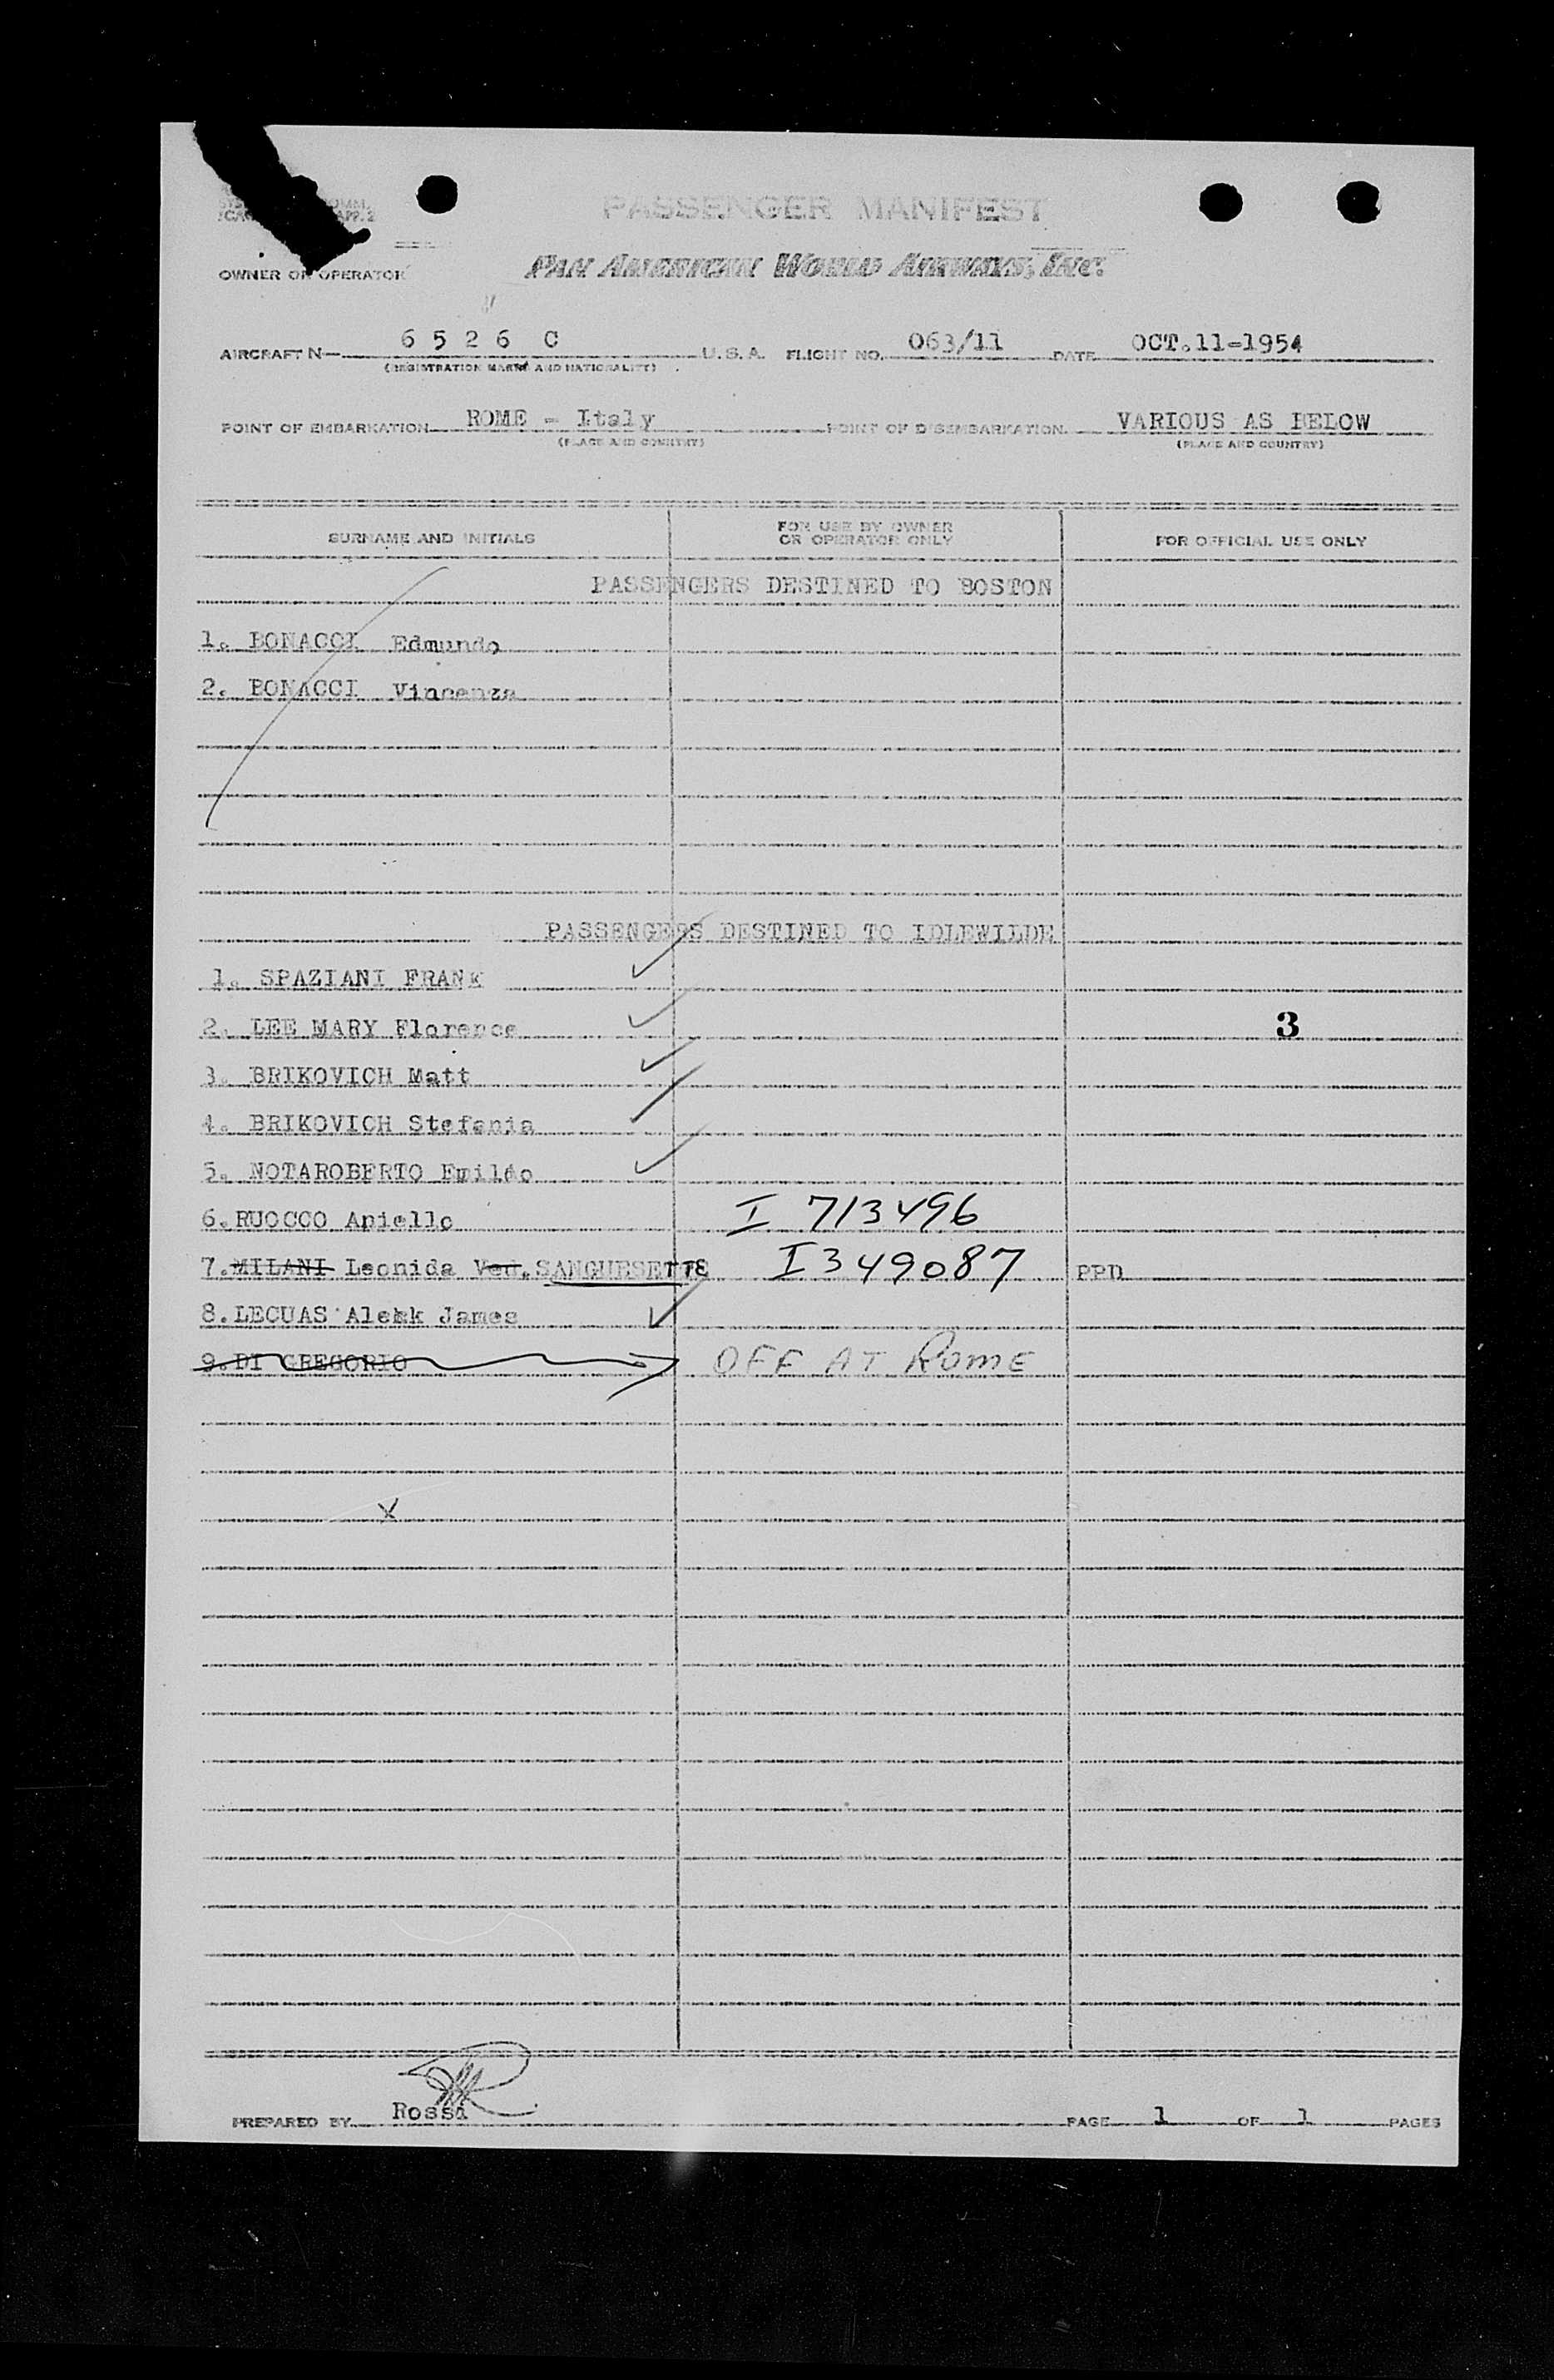 OMM.
APP. 2
PASSENGER MANIFEST
OWNER OR OPERATOR
PAN AMERICAN WORLD AIRWAYS, INC.
AIRCRAFT N— 6 5 2 6 C U. S. A. FLIGHT NO. 063/11 DATE OCT.11-1954
(REGISTRATION MARKS AND NATIONALITY)
POINT OF EMBARKATION ROME - Italy POINT OF DISEMBARKATION VARIOUS AS BELOW
(PLACE AND COUNTRY) (PLACE AND COUNTRY)
SURNAME AND INITIALS FOR USE BY OWNER OR OPERATOR ONLY FOR OFFICIAL USE ONLY
PASSENGERS DESTINED TO BOSTON
1. BONACCI Edmundo
2. BONACCI Vincenza
PASSENGERS DESTINED TO IDLEWILDE
1. SPAZIANI FRANK
2. LEE MARY Florence 3
3. BRIKOVICH Matt
4. BRIKOVICH Stefania
5. NOTAROBERTO
6. RUOCCO Aniello I 713496
7. MILANI Leonida Ved. I 349087 PPD
8. LECUAS James
9. DI GREGORIO OFF AT ROME
X
PREPARED BY Rossi PAGE 1 OF 1 PAGES